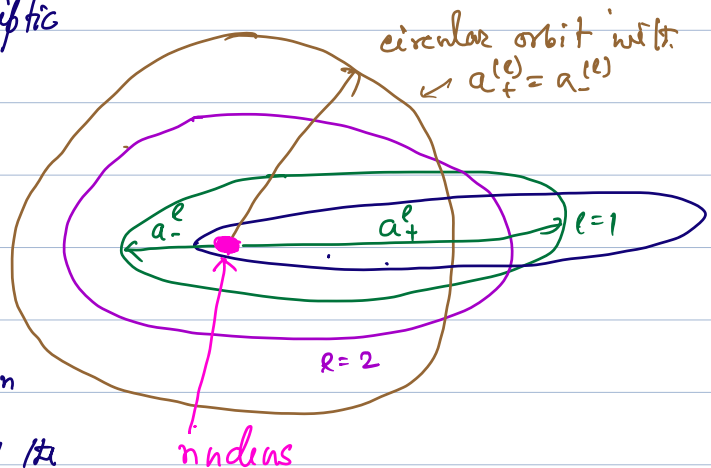 iptic
circular orbit with
a₊⁽ˡ⁾ = a₋⁽ˡ⁾
a₋ˡ
a₊ˡ
l=1
l=2
n
nucleus